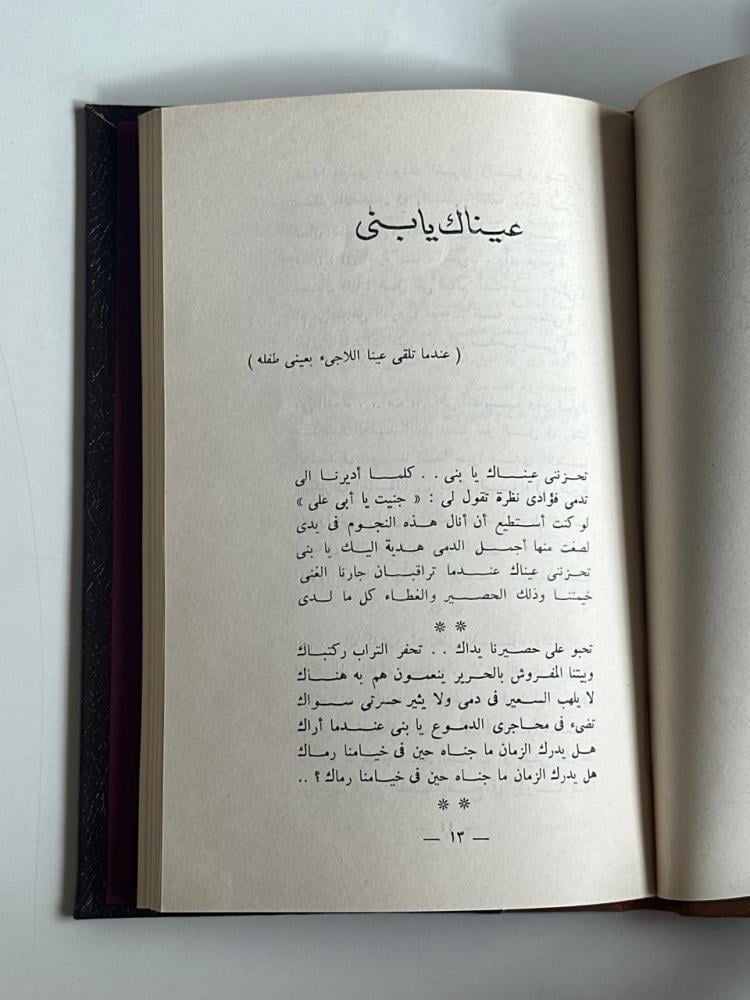 عيناك يا بنى
( عندما تلقى عينا اللاجىء بعينى طفله )
تحزننى عيناك يا بنى . . كلما أديرتا الى
تدمى فؤادى نظرة تقول لى : « جنيت يا أبى على »
لو كنت أستطيع أن أنال هذه النجوم فى يدى
لصغت منها أجمل الدمى هدية اليك يا بنى
تحزننى عيناك عندما تراقبان جارنا الغنى
خيمتنا وذلك الحصير والغطاء كل ما لدى
❊ ❊
تحبو على حصيرنا يداك . . تحفر التراب ركبتاك
وبيتنا المفروش بالحرير ينعمون هم به هناك
لا يلهب السعير فى دمى ولا يثير حسرتى سواك
تضىء فى محاجرى الدموع يا بنى عندما أراك
هل يدرك الزمان ما جناه حين فى خيامنا رماك
هل يدرك الزمان ما جناه حين فى خيامنا رماك ؟ ..
❊ ❊
— ١٣ —